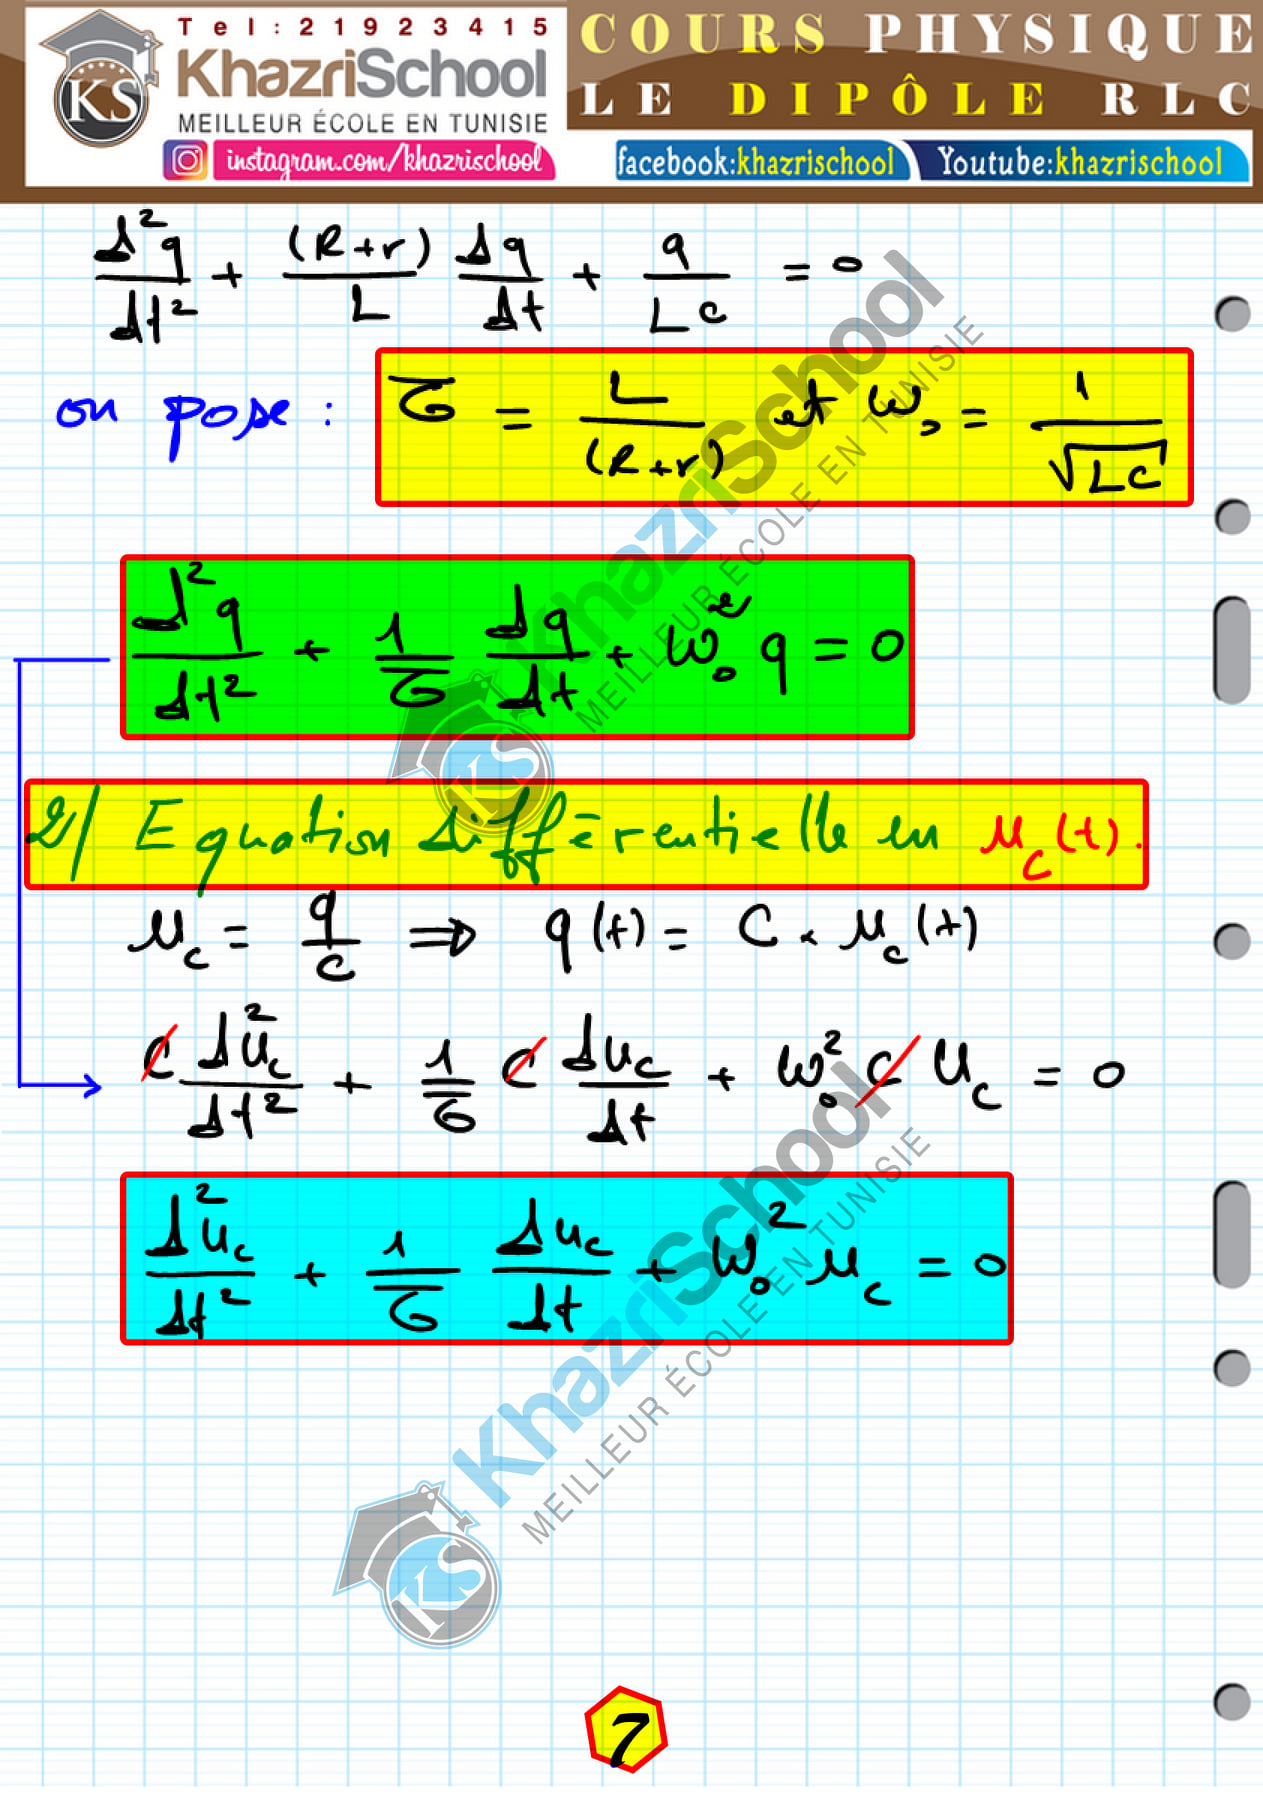 Tel:21923415
KhazriSchool
MEILLEUR ÉCOLE EN TUNISIE
KS
instagram.com/khazrischool
COURS PHYSIQUE
LE DIPÔLE RLC
facebook:khazrischool
Youtube:khazrischool
d²q/dt² + (R+r)/L dq/dt + q/LC = 0
on pose : τ = L/(R+r) et ω₀ = 1/√LC
d²q/dt² + 1/τ dq/dt + ω₀² q = 0
2/ Equation différentielle en uc(t).
uc = q/C ⇒ q(t) = C × uc(t)
C d²uc/dt² + 1/τ C duc/dt + ω₀² C uc = 0
d²uc/dt² + 1/τ duc/dt + ω₀² uc = 0
KhazriSchool
MEILLEUR ÉCOLE EN TUNISIE
KS
KhazriSchool
MEILLEUR ÉCOLE EN TUNISIE
KS
7